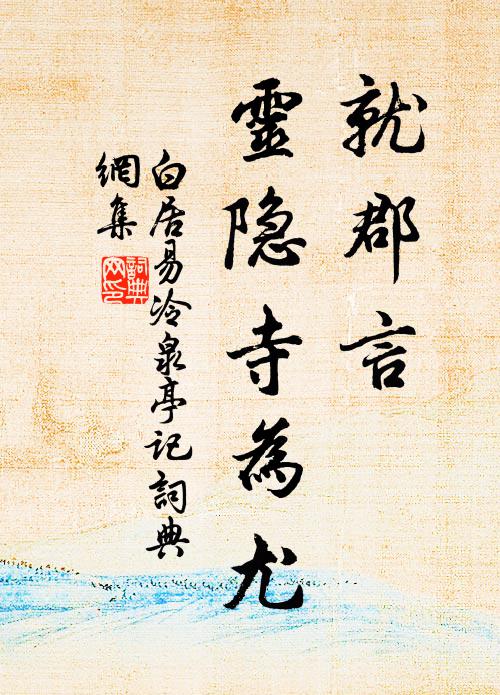 就郡言
靈隐寺為尤
白居易冷泉亭记詞典
網集
詞典
网印